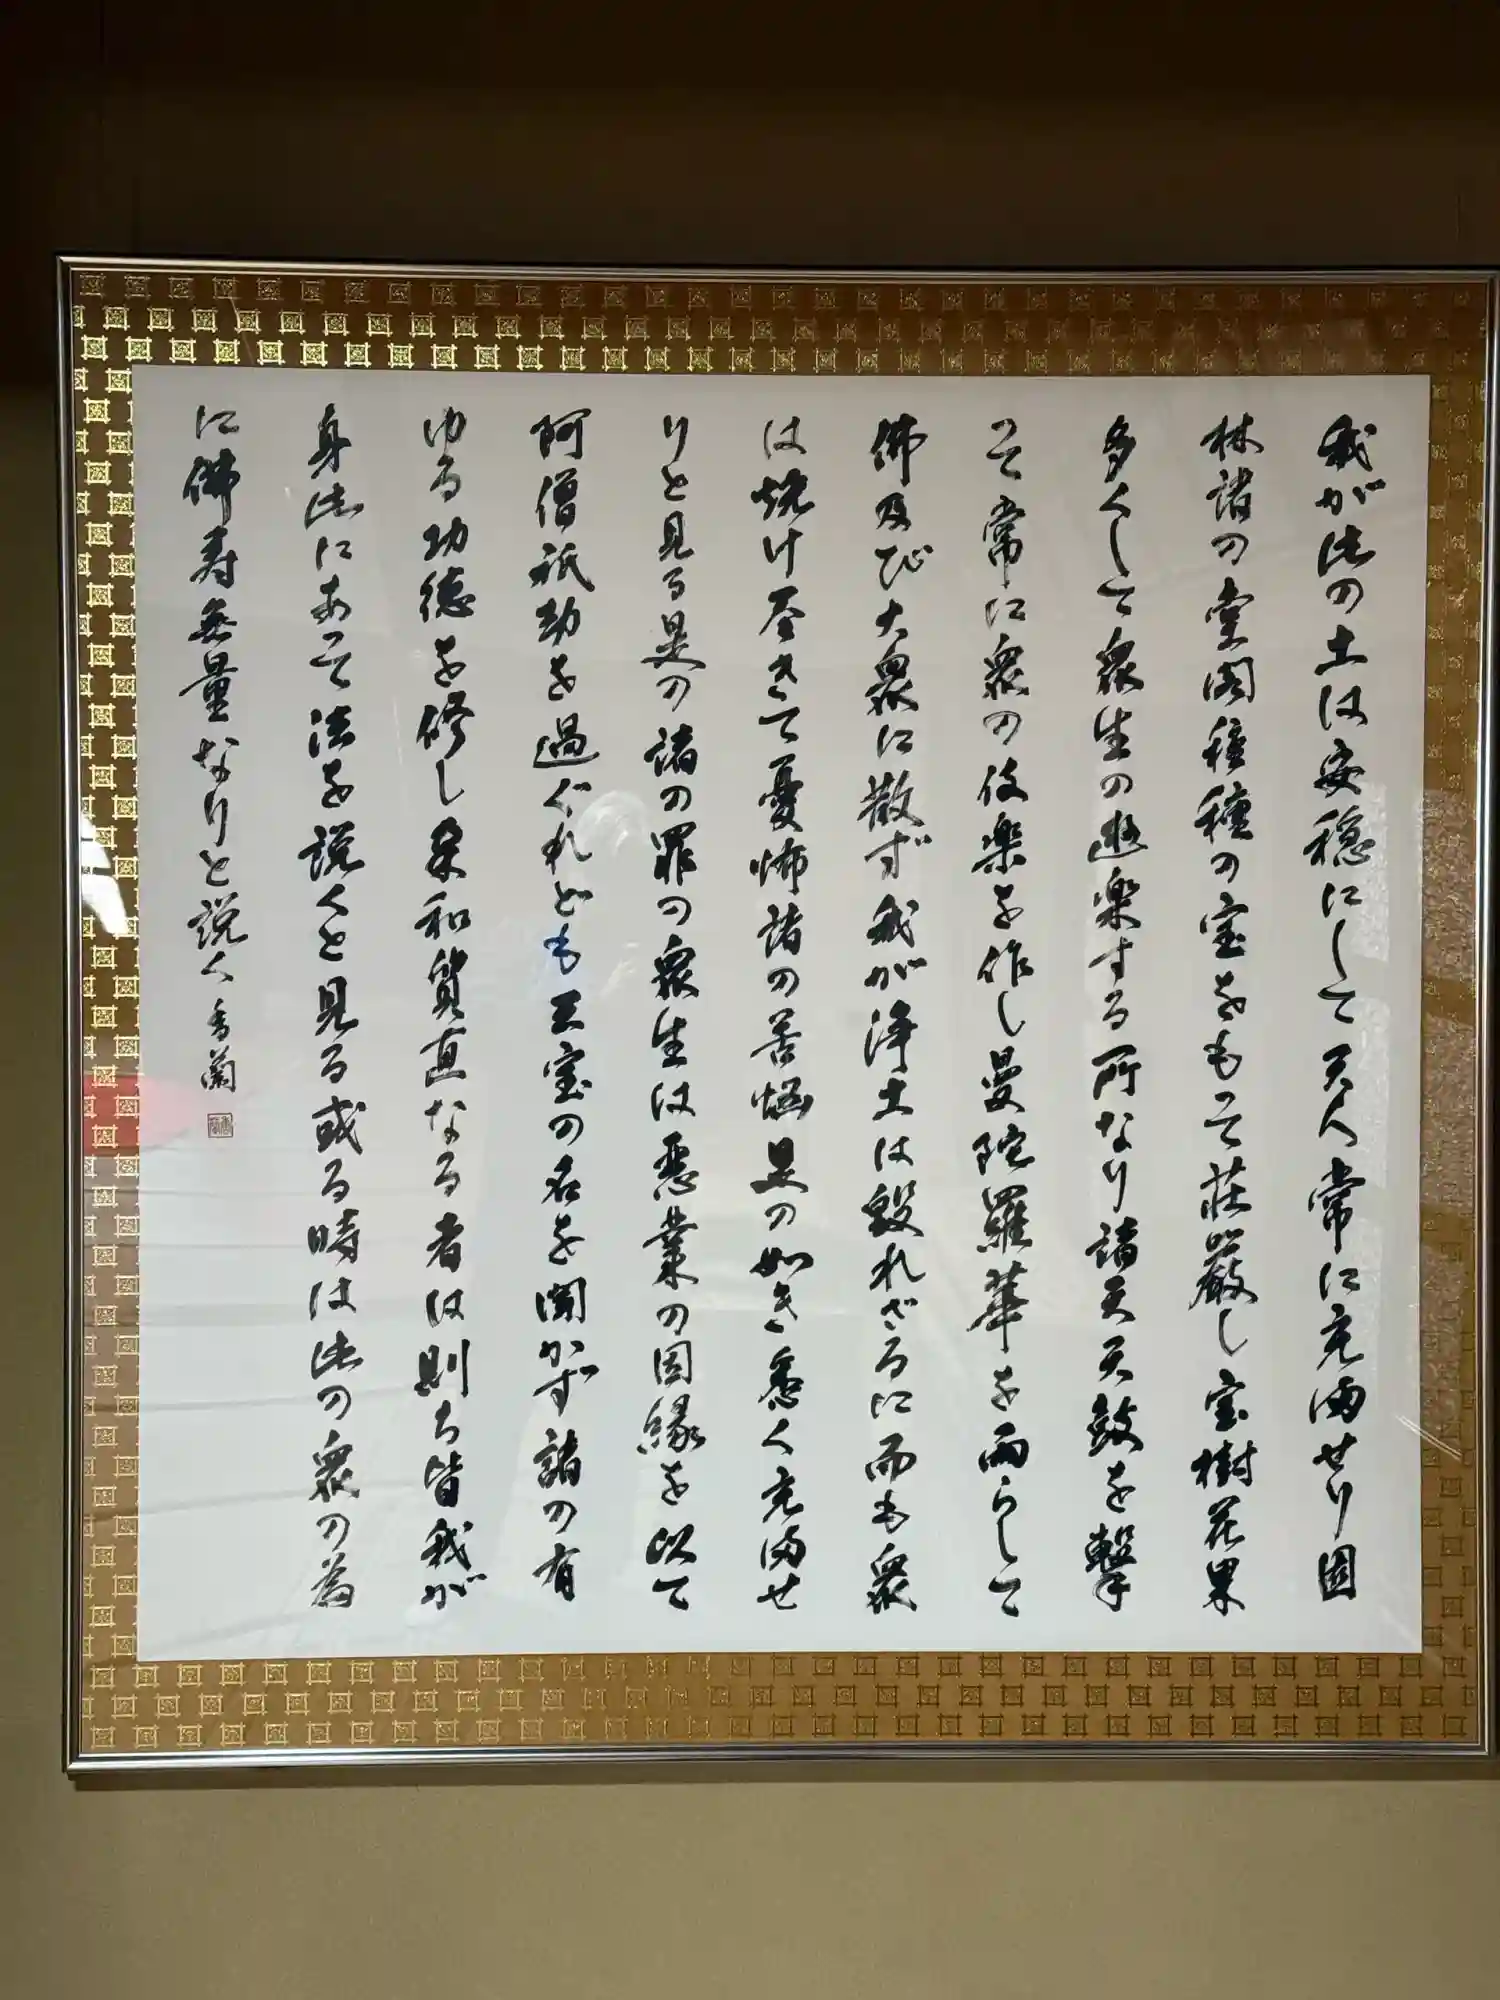 我が此の土は安穏にして天人常に充満せり園
林諸の堂閣種種の宝をもって荘厳し宝樹花果
多くして衆生の遊楽する所なり諸天天鼓を撃
って常に衆の伎楽を作し曼陀羅華を雨らして
佛及び大衆に散ず我が浄土は毀れざるに而も衆
は焼け尽きて憂怖諸の苦悩是の如き悉く充満せ
りと見る是の諸の罪の衆生は悪業の因縁を以て
阿僧祇劫を過ぐれども三宝の名を聞かず諸の有
ゆる功徳を修し柔和質直なる者は則ち皆我が
身此にあって法を説くと見る或る時は此の衆の為
に佛寿無量なりと説く 香蘭